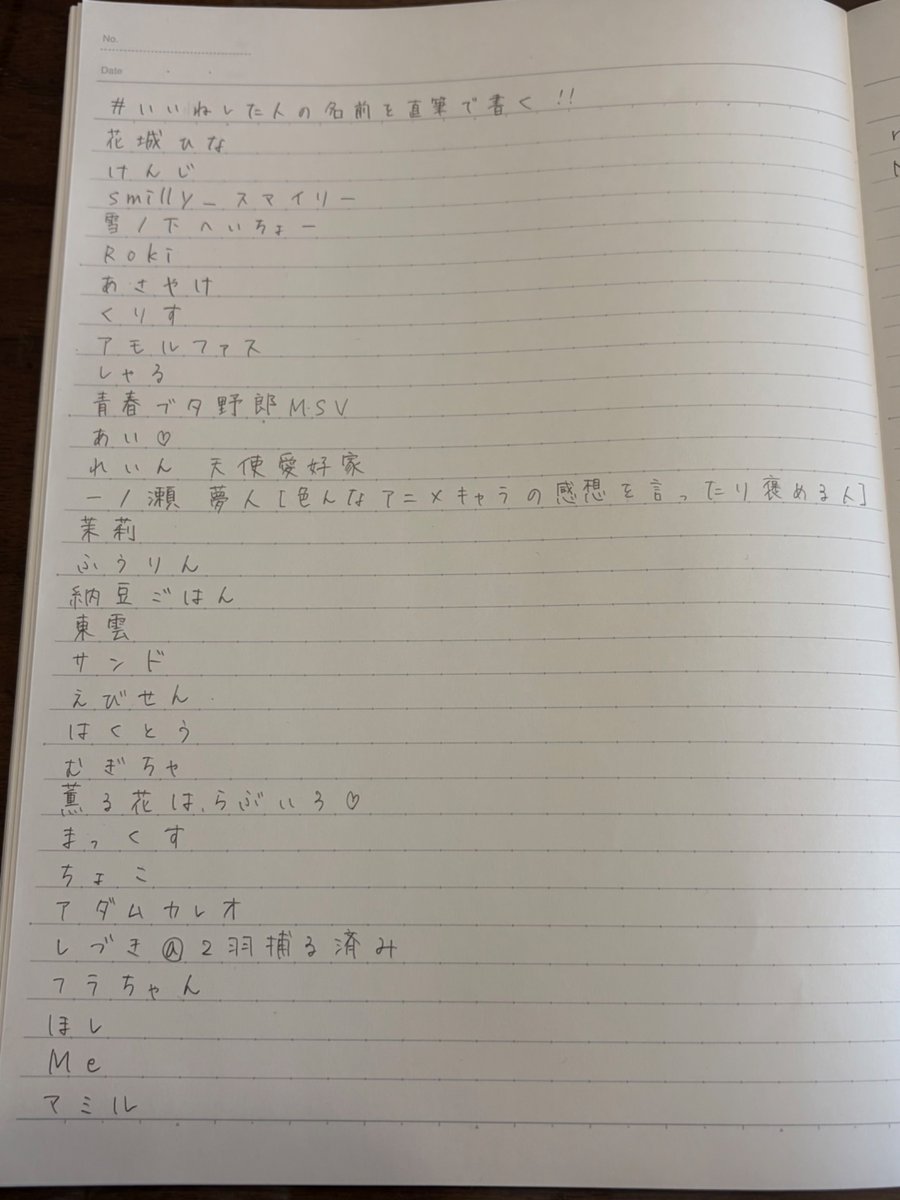 No.
Date
#いいねした人の名前を直筆で書く!!
花城ひな
けんじ
smilly_スマイリー
雪ノ下へいちょー
Roki
あさやけ
くりす
アモルファス
しゃる
青春ブタ野郎MSV
あい♡
れいん 天使愛好家
一ノ瀬 夢人[色んなアニメキャラの感想を言ったり褒める人]
茉莉
ふうりん
納豆ごはん
東雲
サンド
えびせん
はくとう
むぎちゃ
薫る花は、らぶいろ♡
まっくす
ちょこ
アダムカレオ
しづき@2羽捕る済み
フラちゃん
ほし
Me
アミル